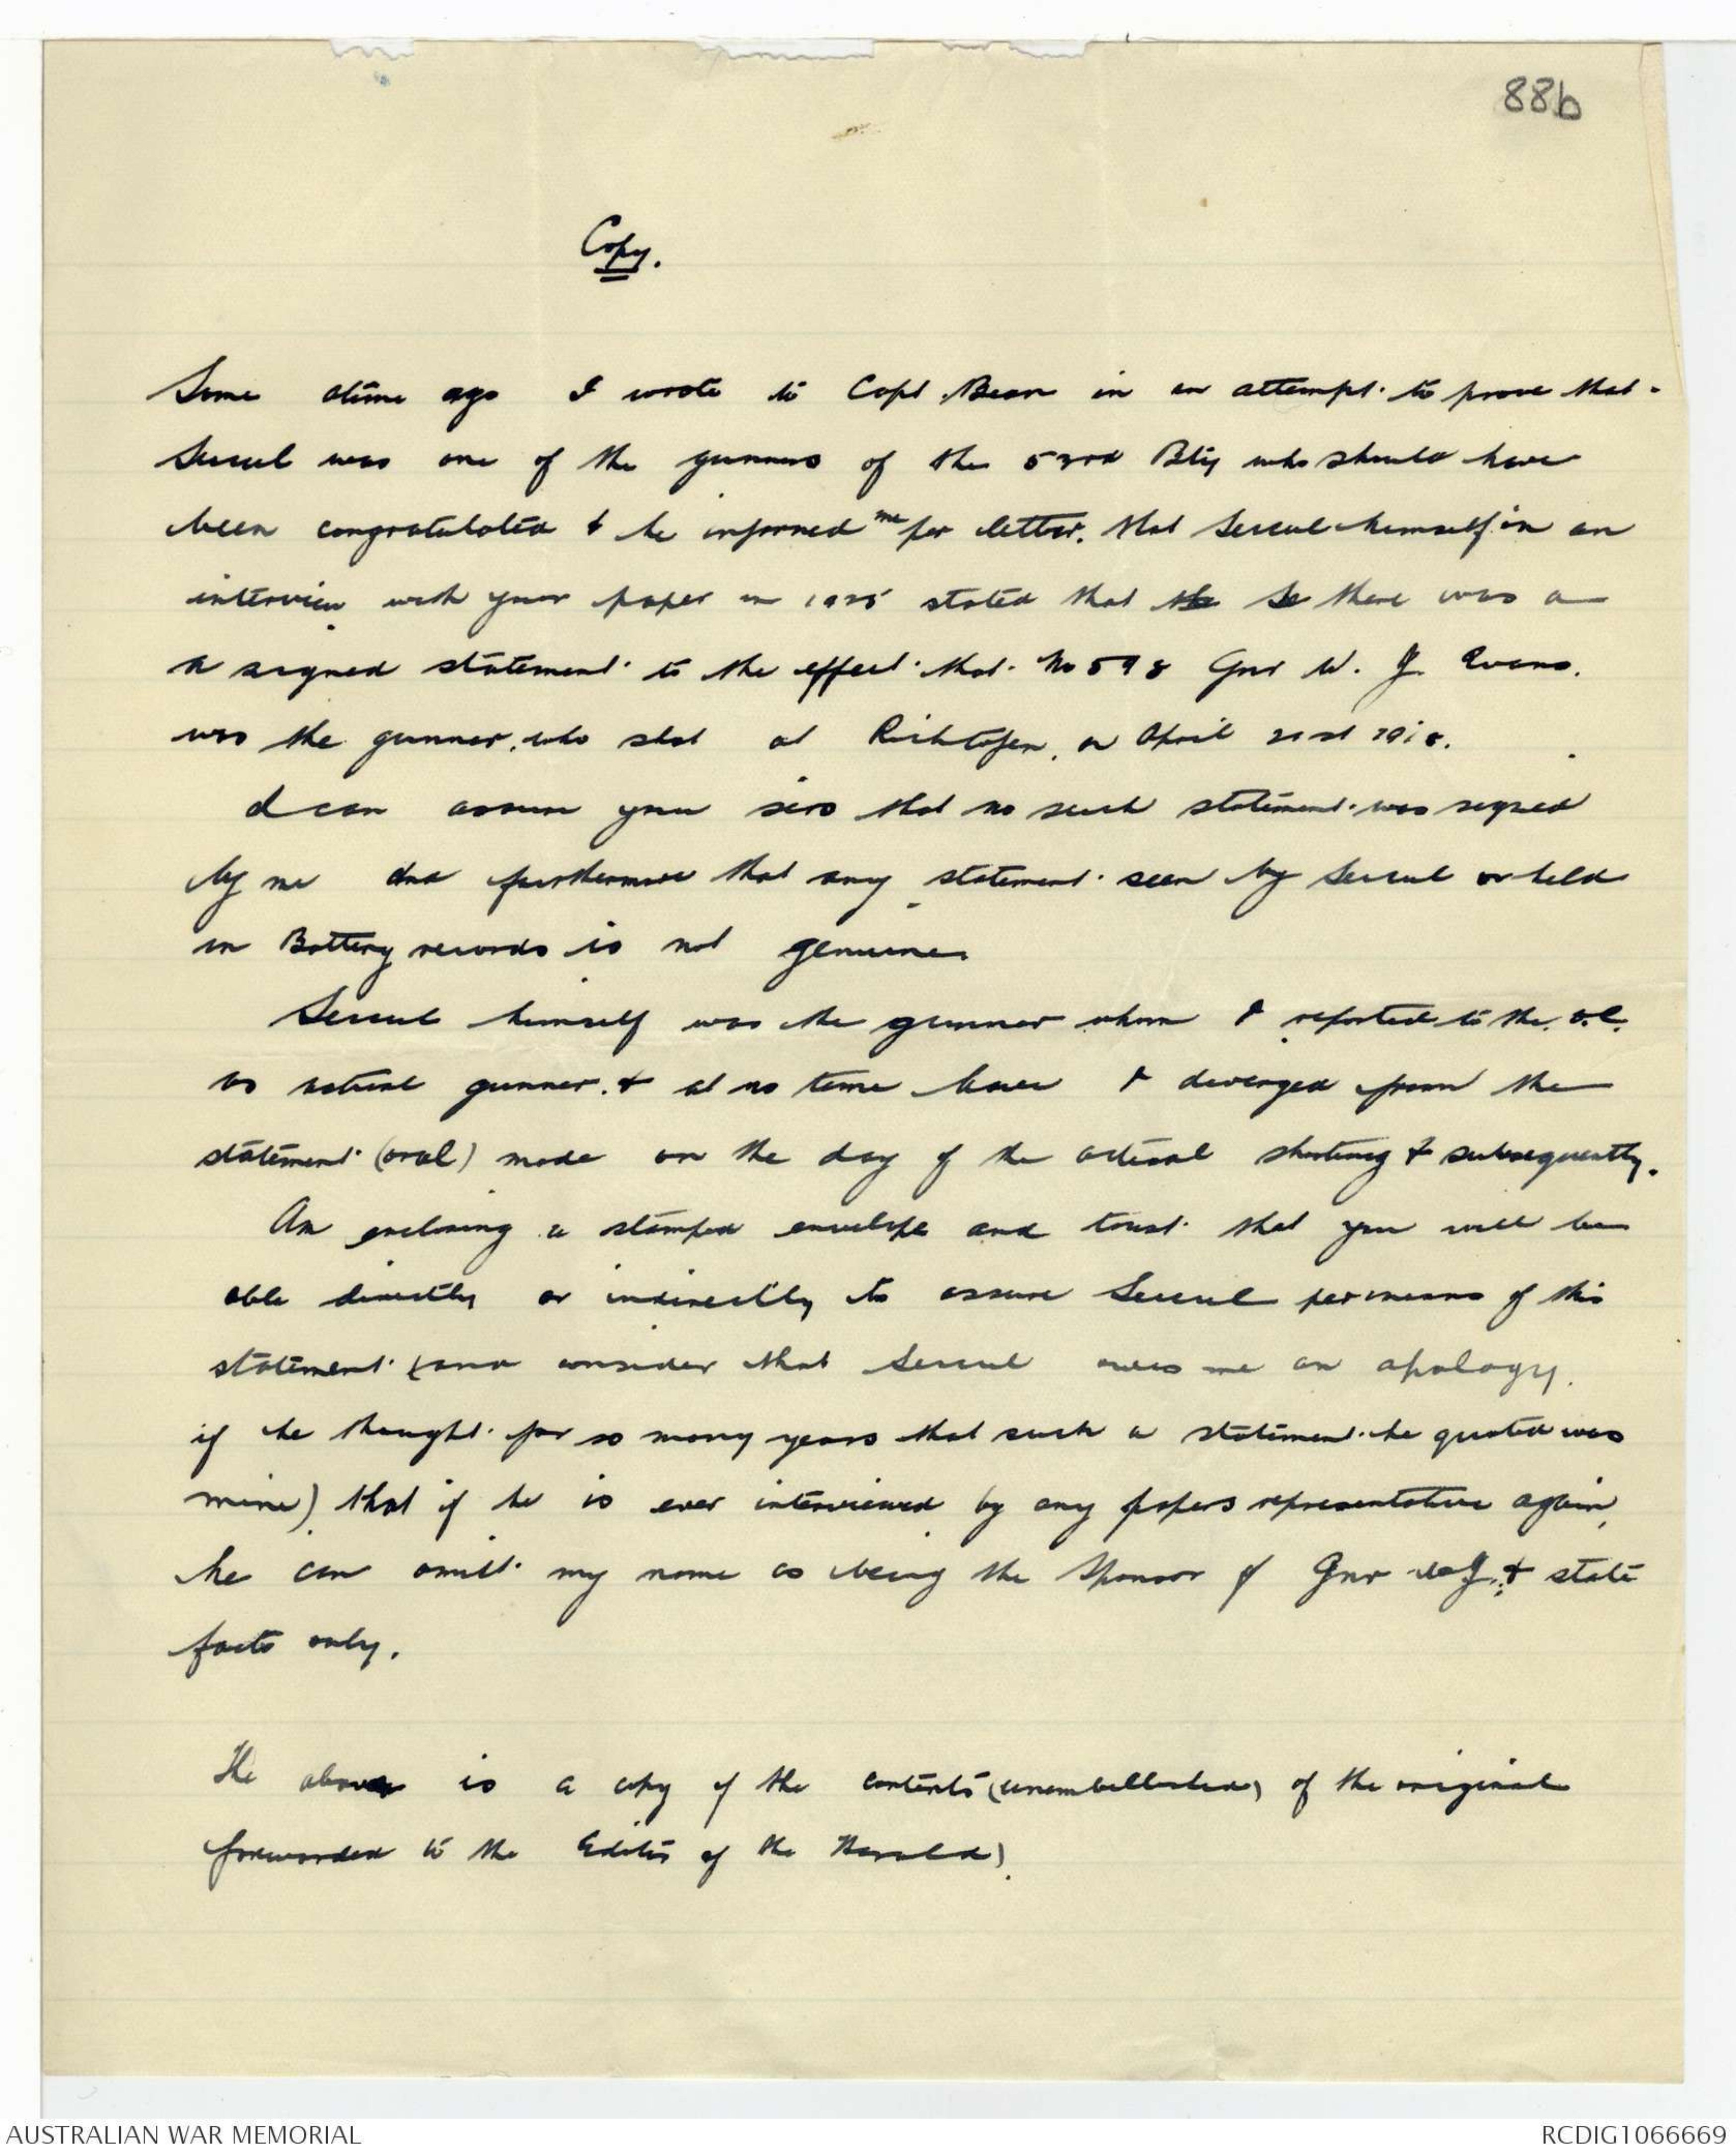 88b
Copy.
Some time ago I wrote to Capt. Bean in an attempt to prove that
was one of the gunners of the 53rd Bty who should have
been congratulated & he informed me per letter. that himself in an
interview with your paper in 1925 stated that the Se there was a
a signed statement to the effect that No 598 Gnr W. J. Evans.
was the gunner, who shot at Richtofen, on April 21st 1918.
I can assure you sirs that no such statement was signed
by me and furthermore that any statement seen by or held
in Battery records is not genuine.
himself was the gunner whom I reported to the O.C.
as actual gunner. & at no time have I diverged from the
statement (oral) made on the day of the actual shooting & subsequently.
Am enclosing a stamped envelope and trust that you will be
able directly or indirectly to assure per means of this
statement (and consider that owes me an apology.
if he thought for so many years that such a statement he quoted was
mine) that if he is ever interviewed by any papers representative again,
he can omit my name as being the Sponsor of Gnr & state
facts only.
The above is a copy of the contents (unembellished) of the original
forwarded to the Editor of the Herald)
AUSTRALIAN WAR MEMORIAL
RCDIG1066669